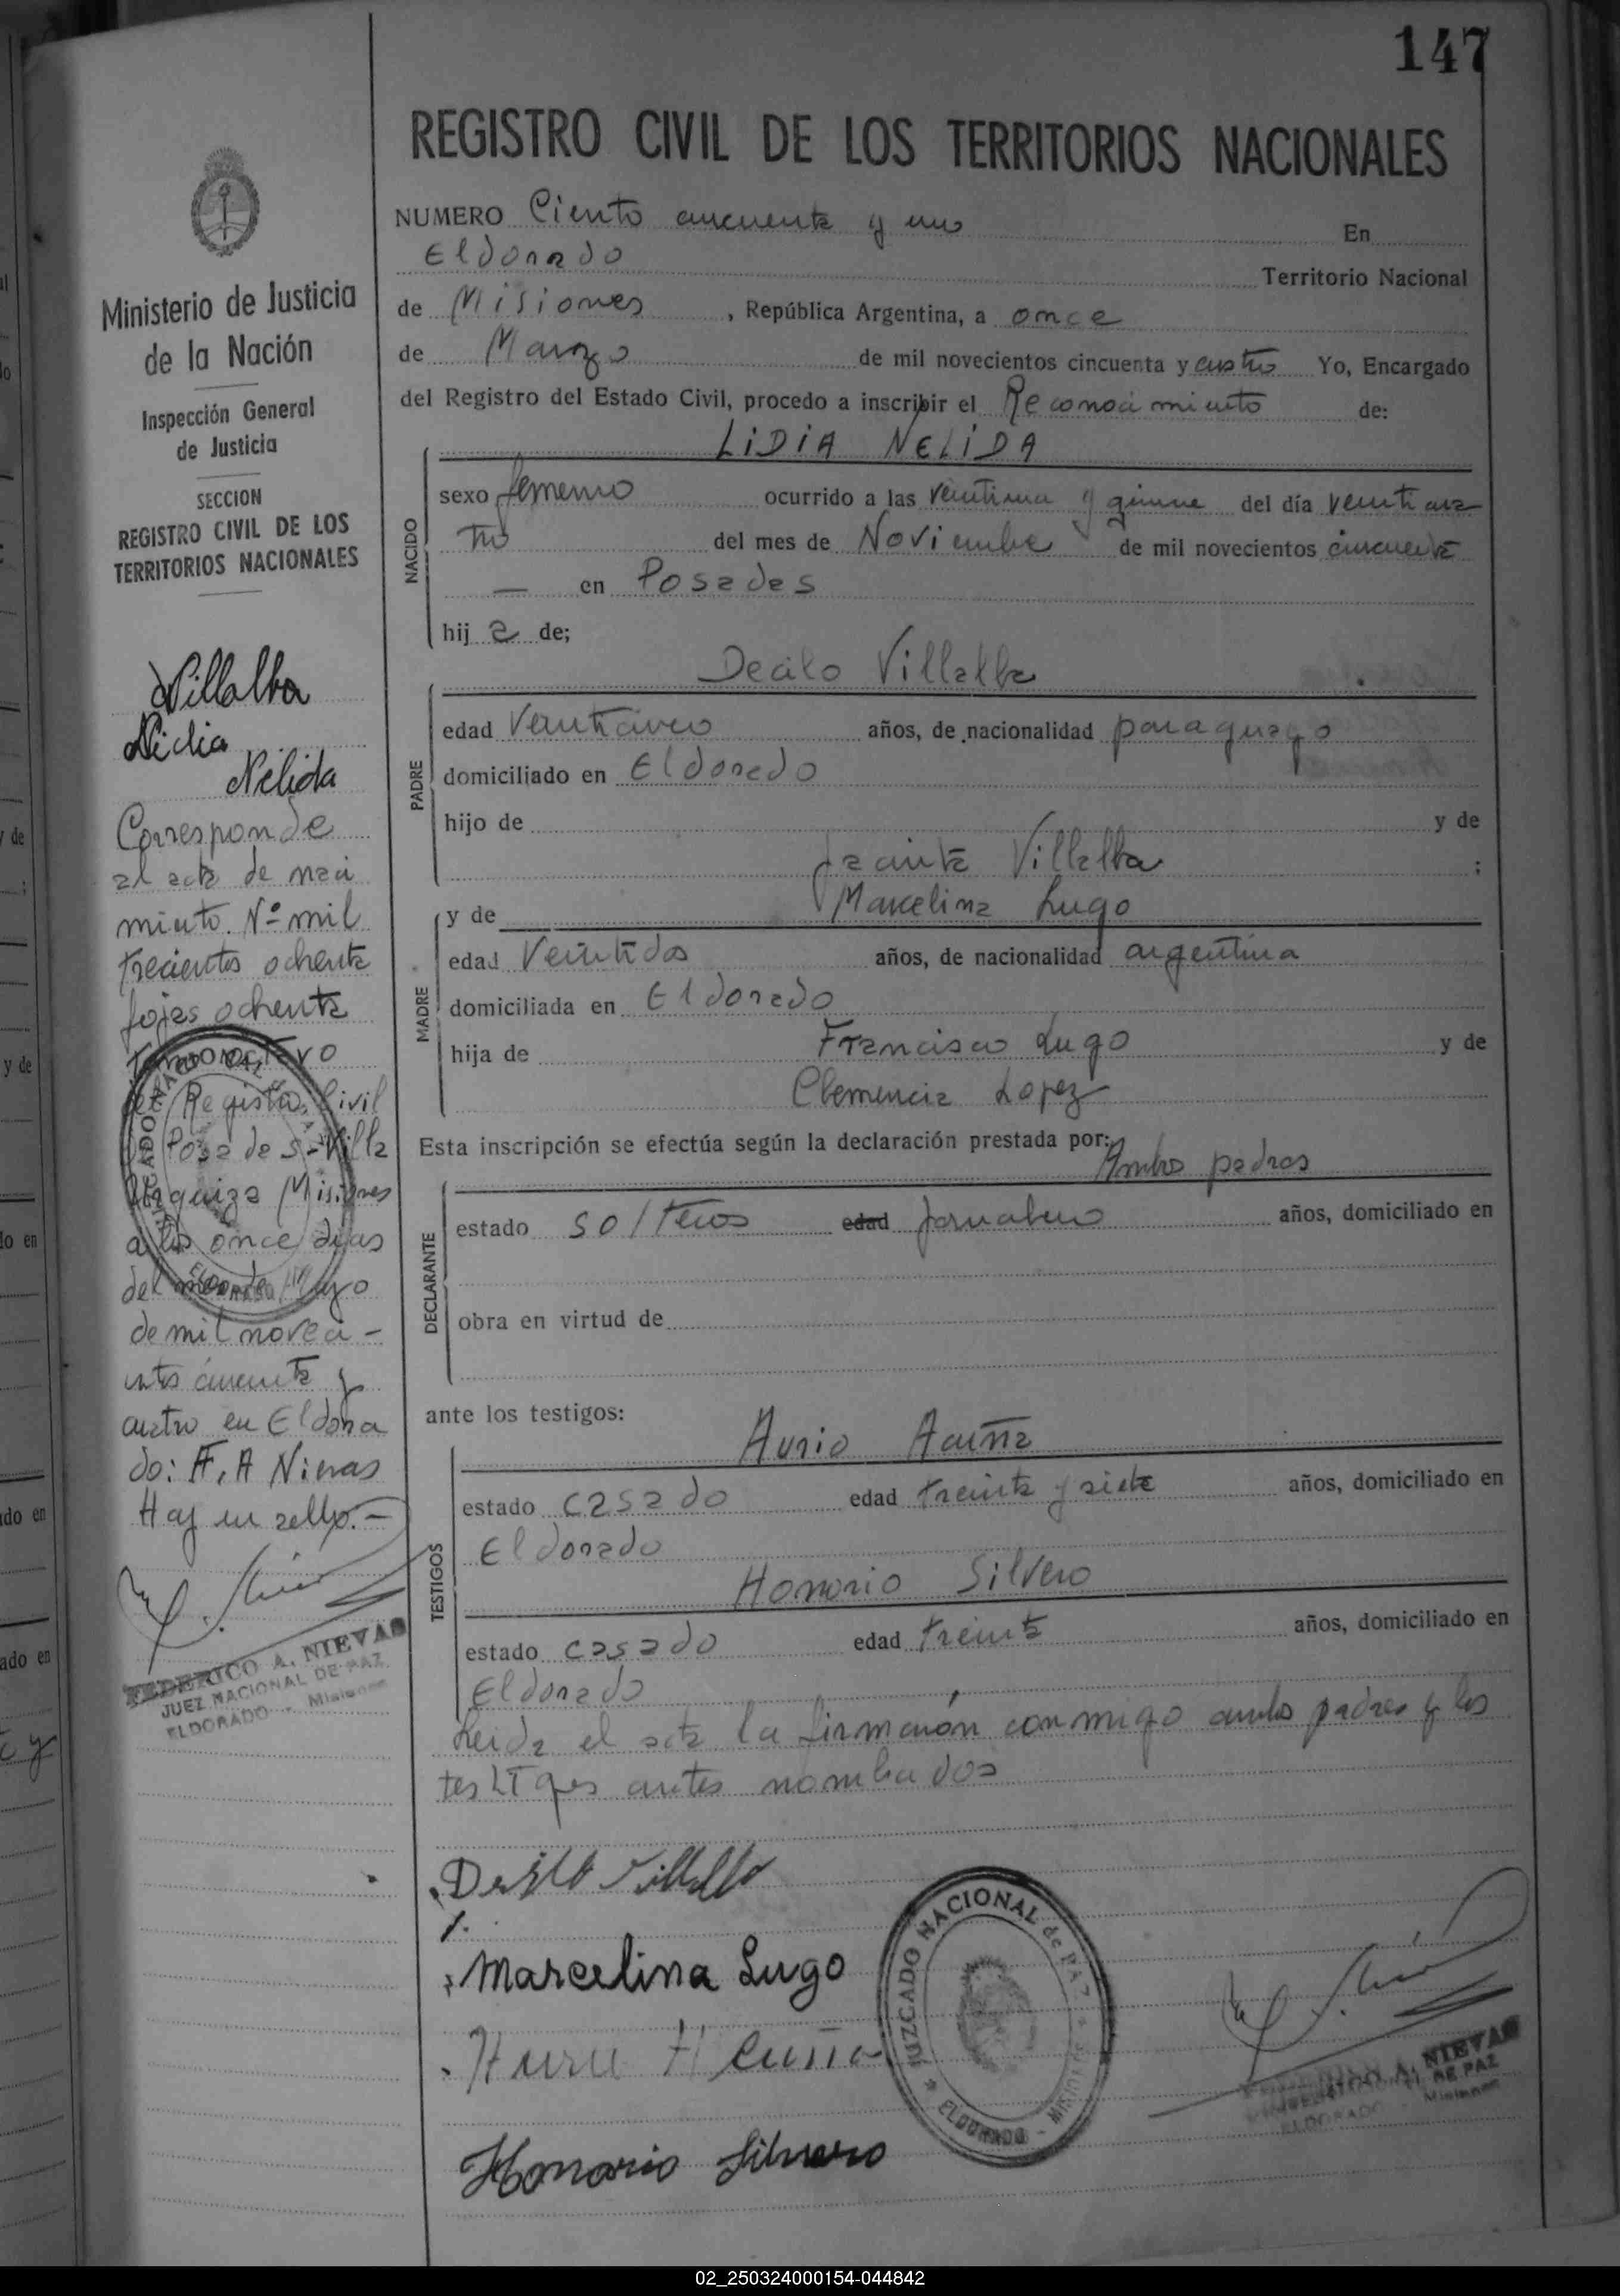 147
REGISTRO CIVIL DE LOS TERRITORIOS NACIONALES
NUMERO Ciento cincuenta y uno En
Eldorado Territorio Nacional
de Misiones, República Argentina, a once
de Marzo de mil novecientos cincuenta y cuatro Yo, Encargado
del Registro del Estado Civil, procedo a inscribir el Reconocimiento de:
NACIDO
LIDIA NELIDA
sexo femenino ocurrido a las veintiuna y quince del día veinticua
tro del mes de Noviembre de mil novecientos cincuenta
— en Posadas
hij a de;
PADRE
Decilo Villalba
edad Veinticinco años, de nacionalidad paraguayo
domiciliado en Eldorado
hijo de y de
Jacinta Villalba ;
MADRE
y de Marcelina Lugo
edad Veintidos años, de nacionalidad argentina
domiciliada en Eldorado
hija de Francisco Lugo y de
Clemencia Lopez
Esta inscripción se efectúa según la declaración prestada por:
Ambos padres
DECLARANTE
estado solteros edad Jornalero años, domiciliado en
obra en virtud de
ante los testigos:
TESTIGOS
Acuña
estado casado edad treinta y siete años, domiciliado en
Eldorado
Honorio Silvero
estado casado edad treinta años, domiciliado en
Eldorado
Leida el acta la firmaron conmigo ambos padres y los
testigos antes nombados
Villalba
Marcelina Lugo
Acuña
Honorio Silvero
JUZGADO NACIONAL de PAZ
ELDORADO - MISIONES
NIEVAS
DE PAZ
ELDORADO - Misiones
Ministerio de Justicia
de la Nación
Inspección General
de Justicia
SECCION
REGISTRO CIVIL DE LOS
TERRITORIOS NACIONALES
Villalba
Lidia
Nelida
Corresponde
al acta de naci
miento. Nº mil
trecientos ochenta
fojas ochenta
Tomo octavo
del Registro Civil
Posadas - Villa
Urquiza Misiones
a los once dias
del mes de Mayo
de mil noveci-
entos cincuenta y
cuatro en Eldora
do: F. A Nievas
Hay un sello.-
FEDERICO A. NIEVAS
JUEZ NACIONAL DE PAZ
ELDORADO - Misiones
02_250324000154-044842